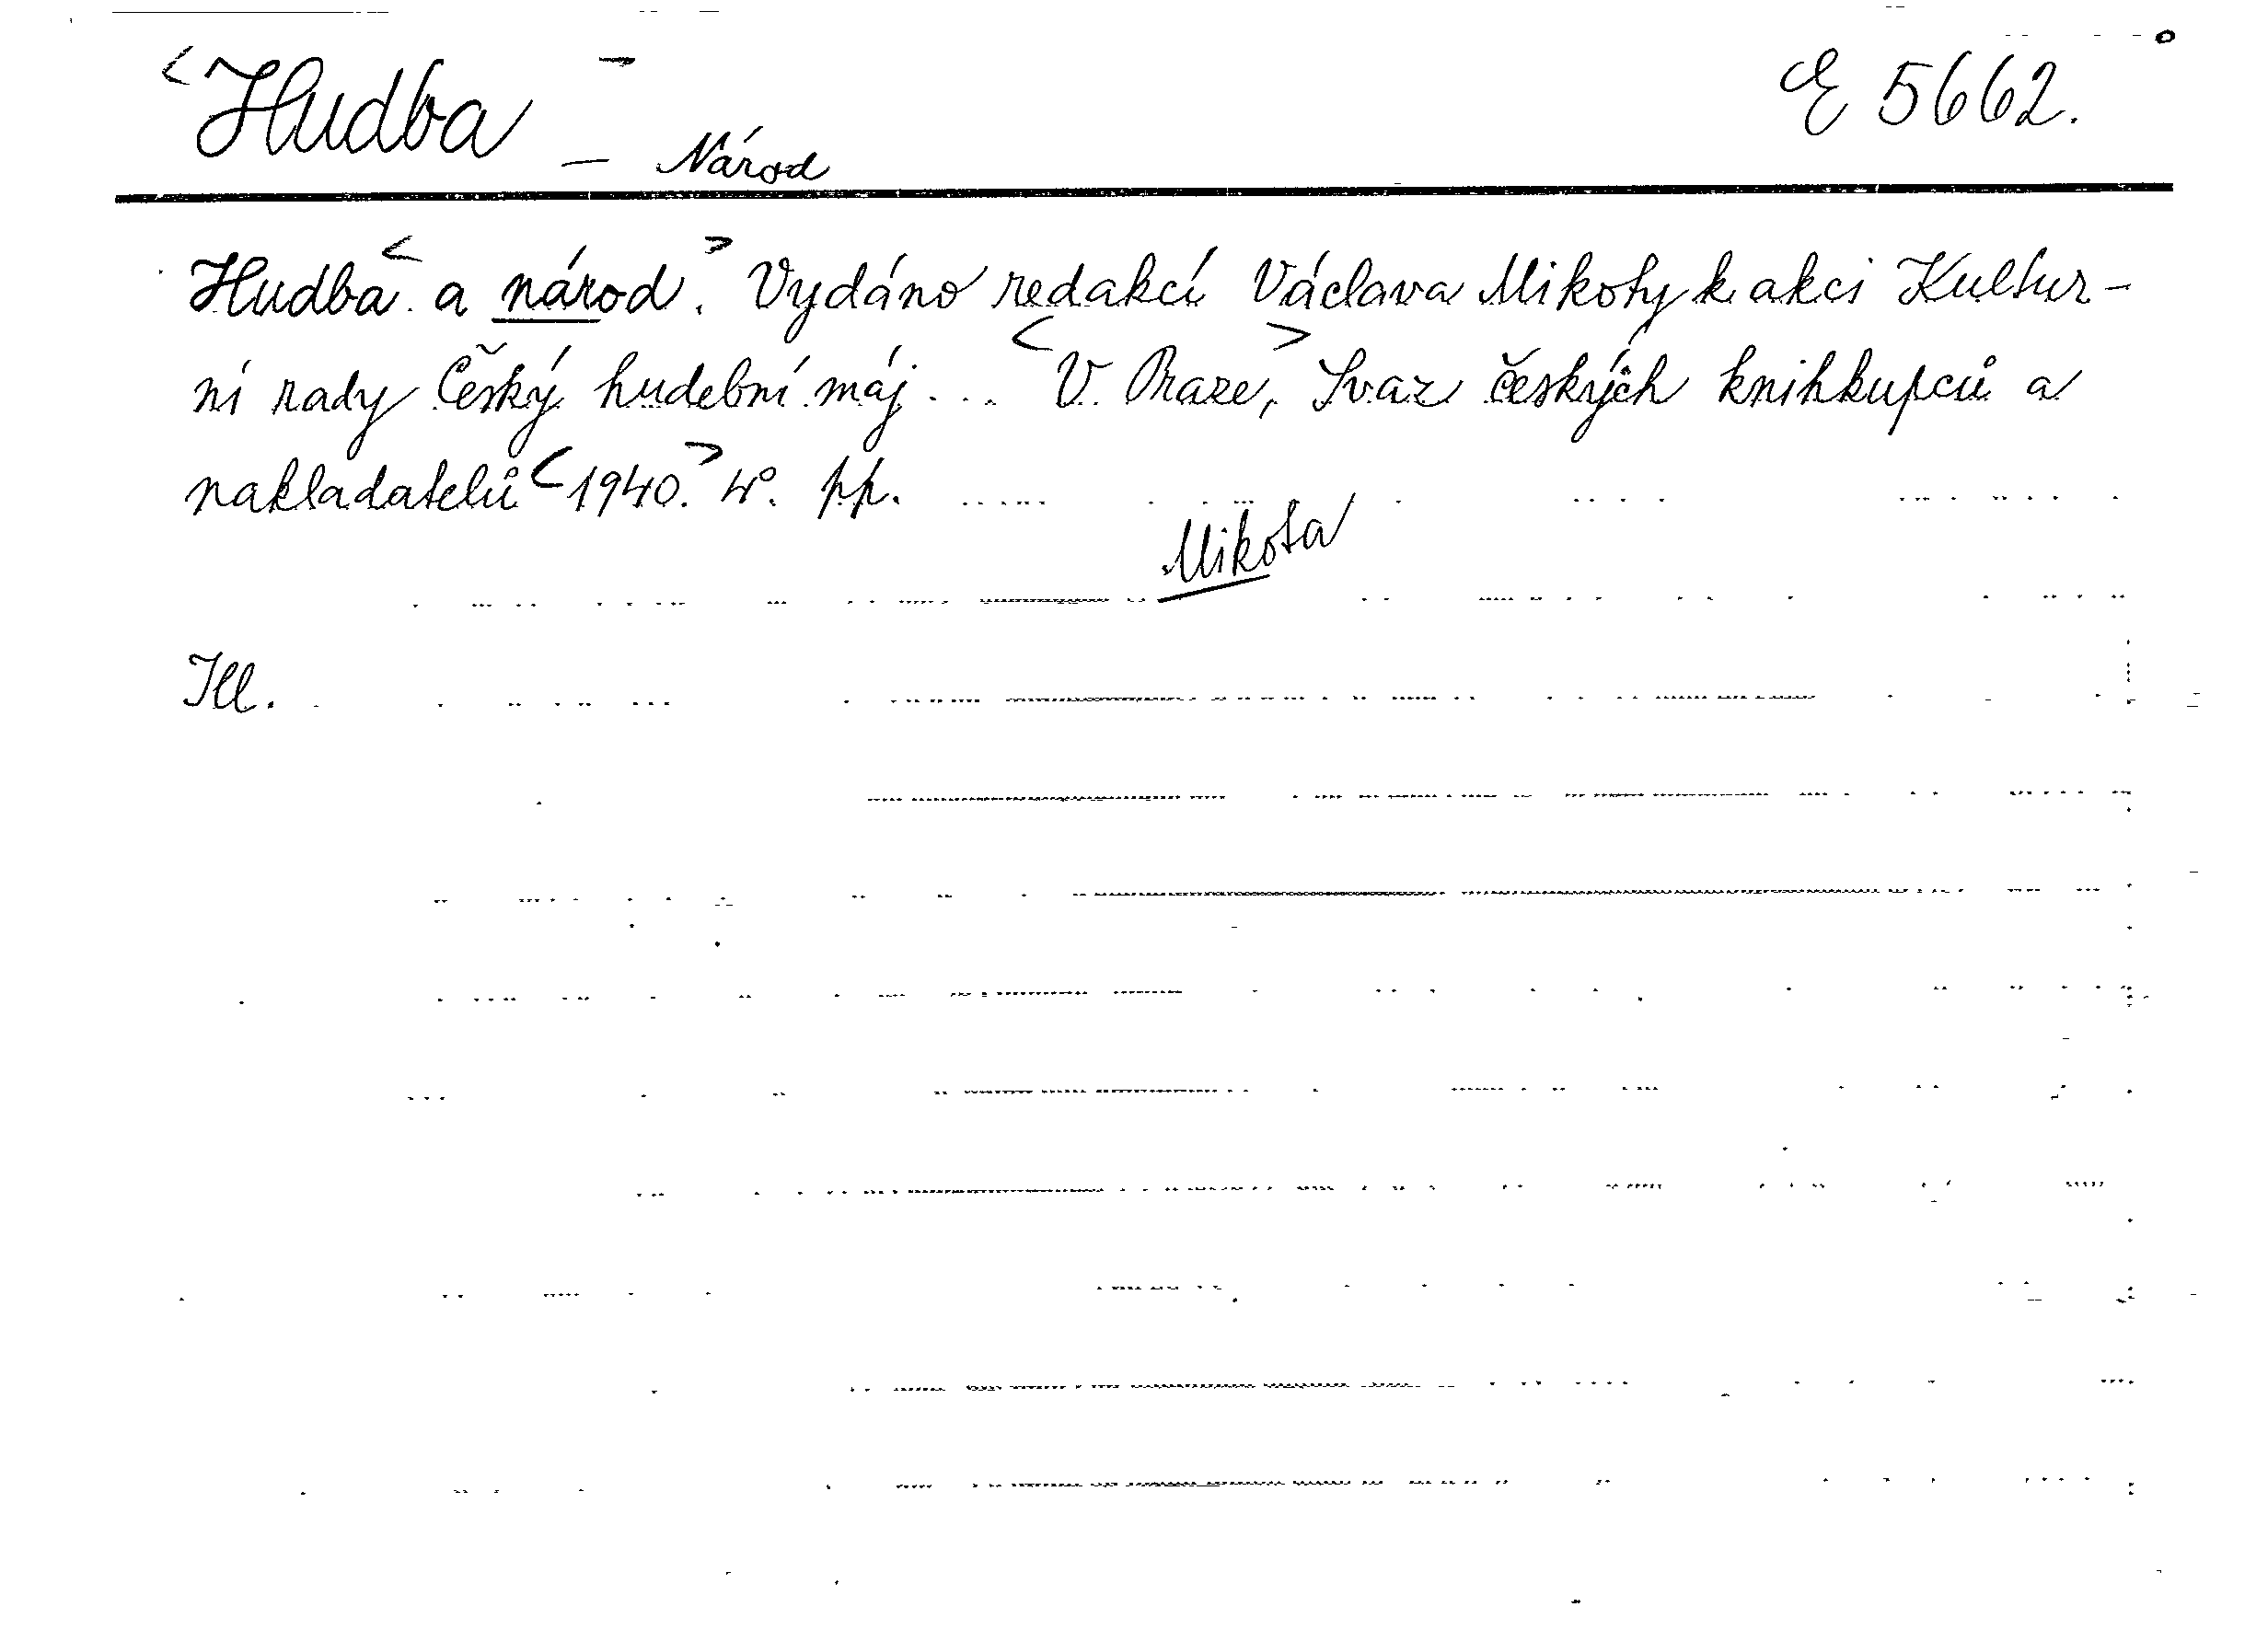 <Hudba – Národ> E 5662.
Hudba <a národ.> Vydáno redakcí Václava Mikoty k akci Kultur-
ní rady Český hudební máj... <V Praze,> Svaz českých knihkupců a
nakladatelů <1940.> 4°. pp.
Mikota
Ill.